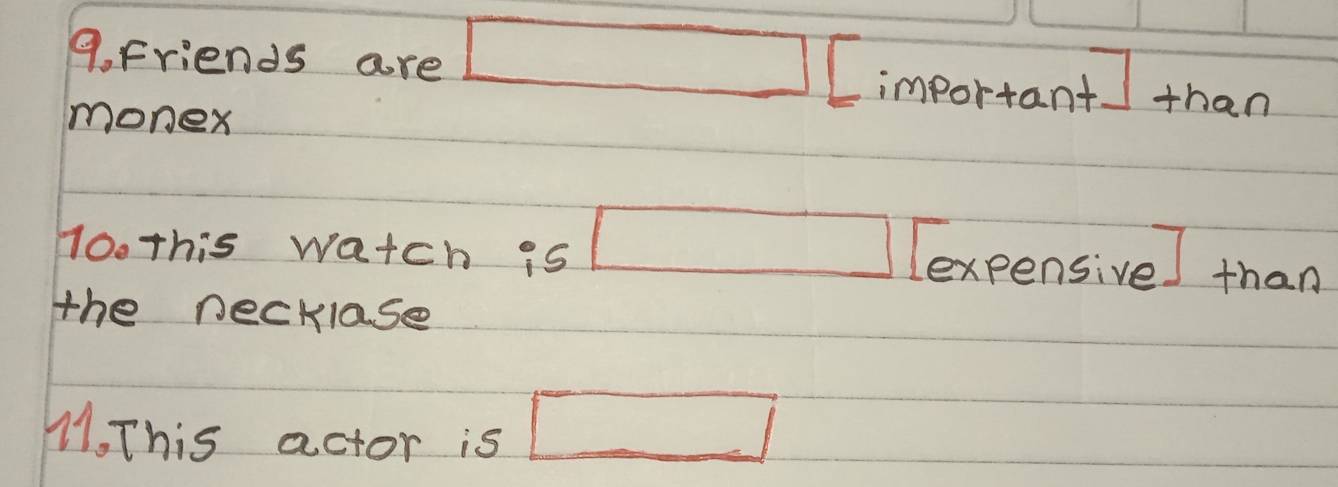 9. Friends are [important] than
monex
10. This watch is [expensive] than
the necklase
11. This actor is